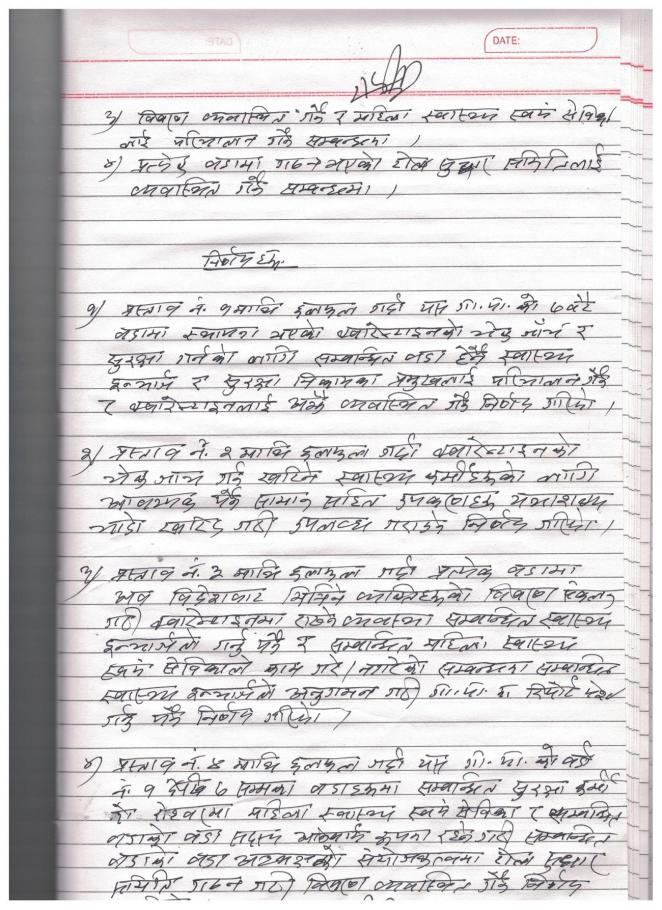 DATE:
३) विवरण व्यवस्थित गर्ने र महिला स्वास्थ्य स्वयं सेविका
लाई परिचालन गर्ने सम्बन्धमा ।
४) प्रत्येक वडामा गठन भएको टोल सुधार समितिलाई
व्यवस्थित गर्ने सम्बन्धमा ।
निर्णयहरु
१) प्रस्ताव नं. १ माथि छलफल गर्दा यस गा.पा. को ७ वटै
वडामा स्थापना भएको क्वारेन्टाइनको चेक जाँच र
सुरक्षा गर्नको लागि सम्बन्धित वडा हेर्ने स्वास्थ्य
इन्चार्ज र सुरक्षा निकायका प्रमुखलाई परिचालन गर्ने
र क्वारेन्टाइनलाई अझै व्यवस्थित गर्ने निर्णय गरियो ।
२) प्रस्ताव नं. २ माथि छलफल गर्दा क्वारेन्टाइनको
चेक जाँच गर्न खटिने स्वास्थ्य कर्मीहरुको लागि
आवश्यक पर्ने सामान सहित उपकरणहरु यथाशक्य
चाँडो खरिद गरी उपलब्ध गराउने निर्णय गरियो ।
३) प्रस्ताव नं. ३ माथि छलफल गर्दा प्रत्येक वडामा
अब विदेशबाट भित्रिने व्यक्तिहरुको विवरण संकलन
गरी क्वारेन्टाइनमा राख्ने व्यवस्था सम्बन्धित स्वास्थ्य
इन्चार्जले गर्नु पर्ने र सम्बन्धित महिला स्वास्थ्य
स्वयं सेविकाले काम गरे/नगरेको सम्बन्धमा सम्बन्धित
स्वास्थ्य इन्चार्जले अनुगमन गरी गा.पा. मा रिपोर्ट पेश
गर्नु पर्ने निर्णय गरियो ।
४) प्रस्ताव नं. ४ माथि छलफल गर्दा यस गा.पा. को वडा
नं. १ देखि ७ सम्मका वडाहरुमा सम्बन्धित सुरक्षा कर्मी
को रोहवरमा महिला स्वास्थ्य स्वयं सेविका र सम्बन्धित
वडाको वडा सदस्य रहने गरी सम्बन्धित
वडाको वडा अध्यक्षको संयोजकत्वमा टोल सुधार
समिति गठन गरी विवरण व्यवस्थित गर्ने निर्णय